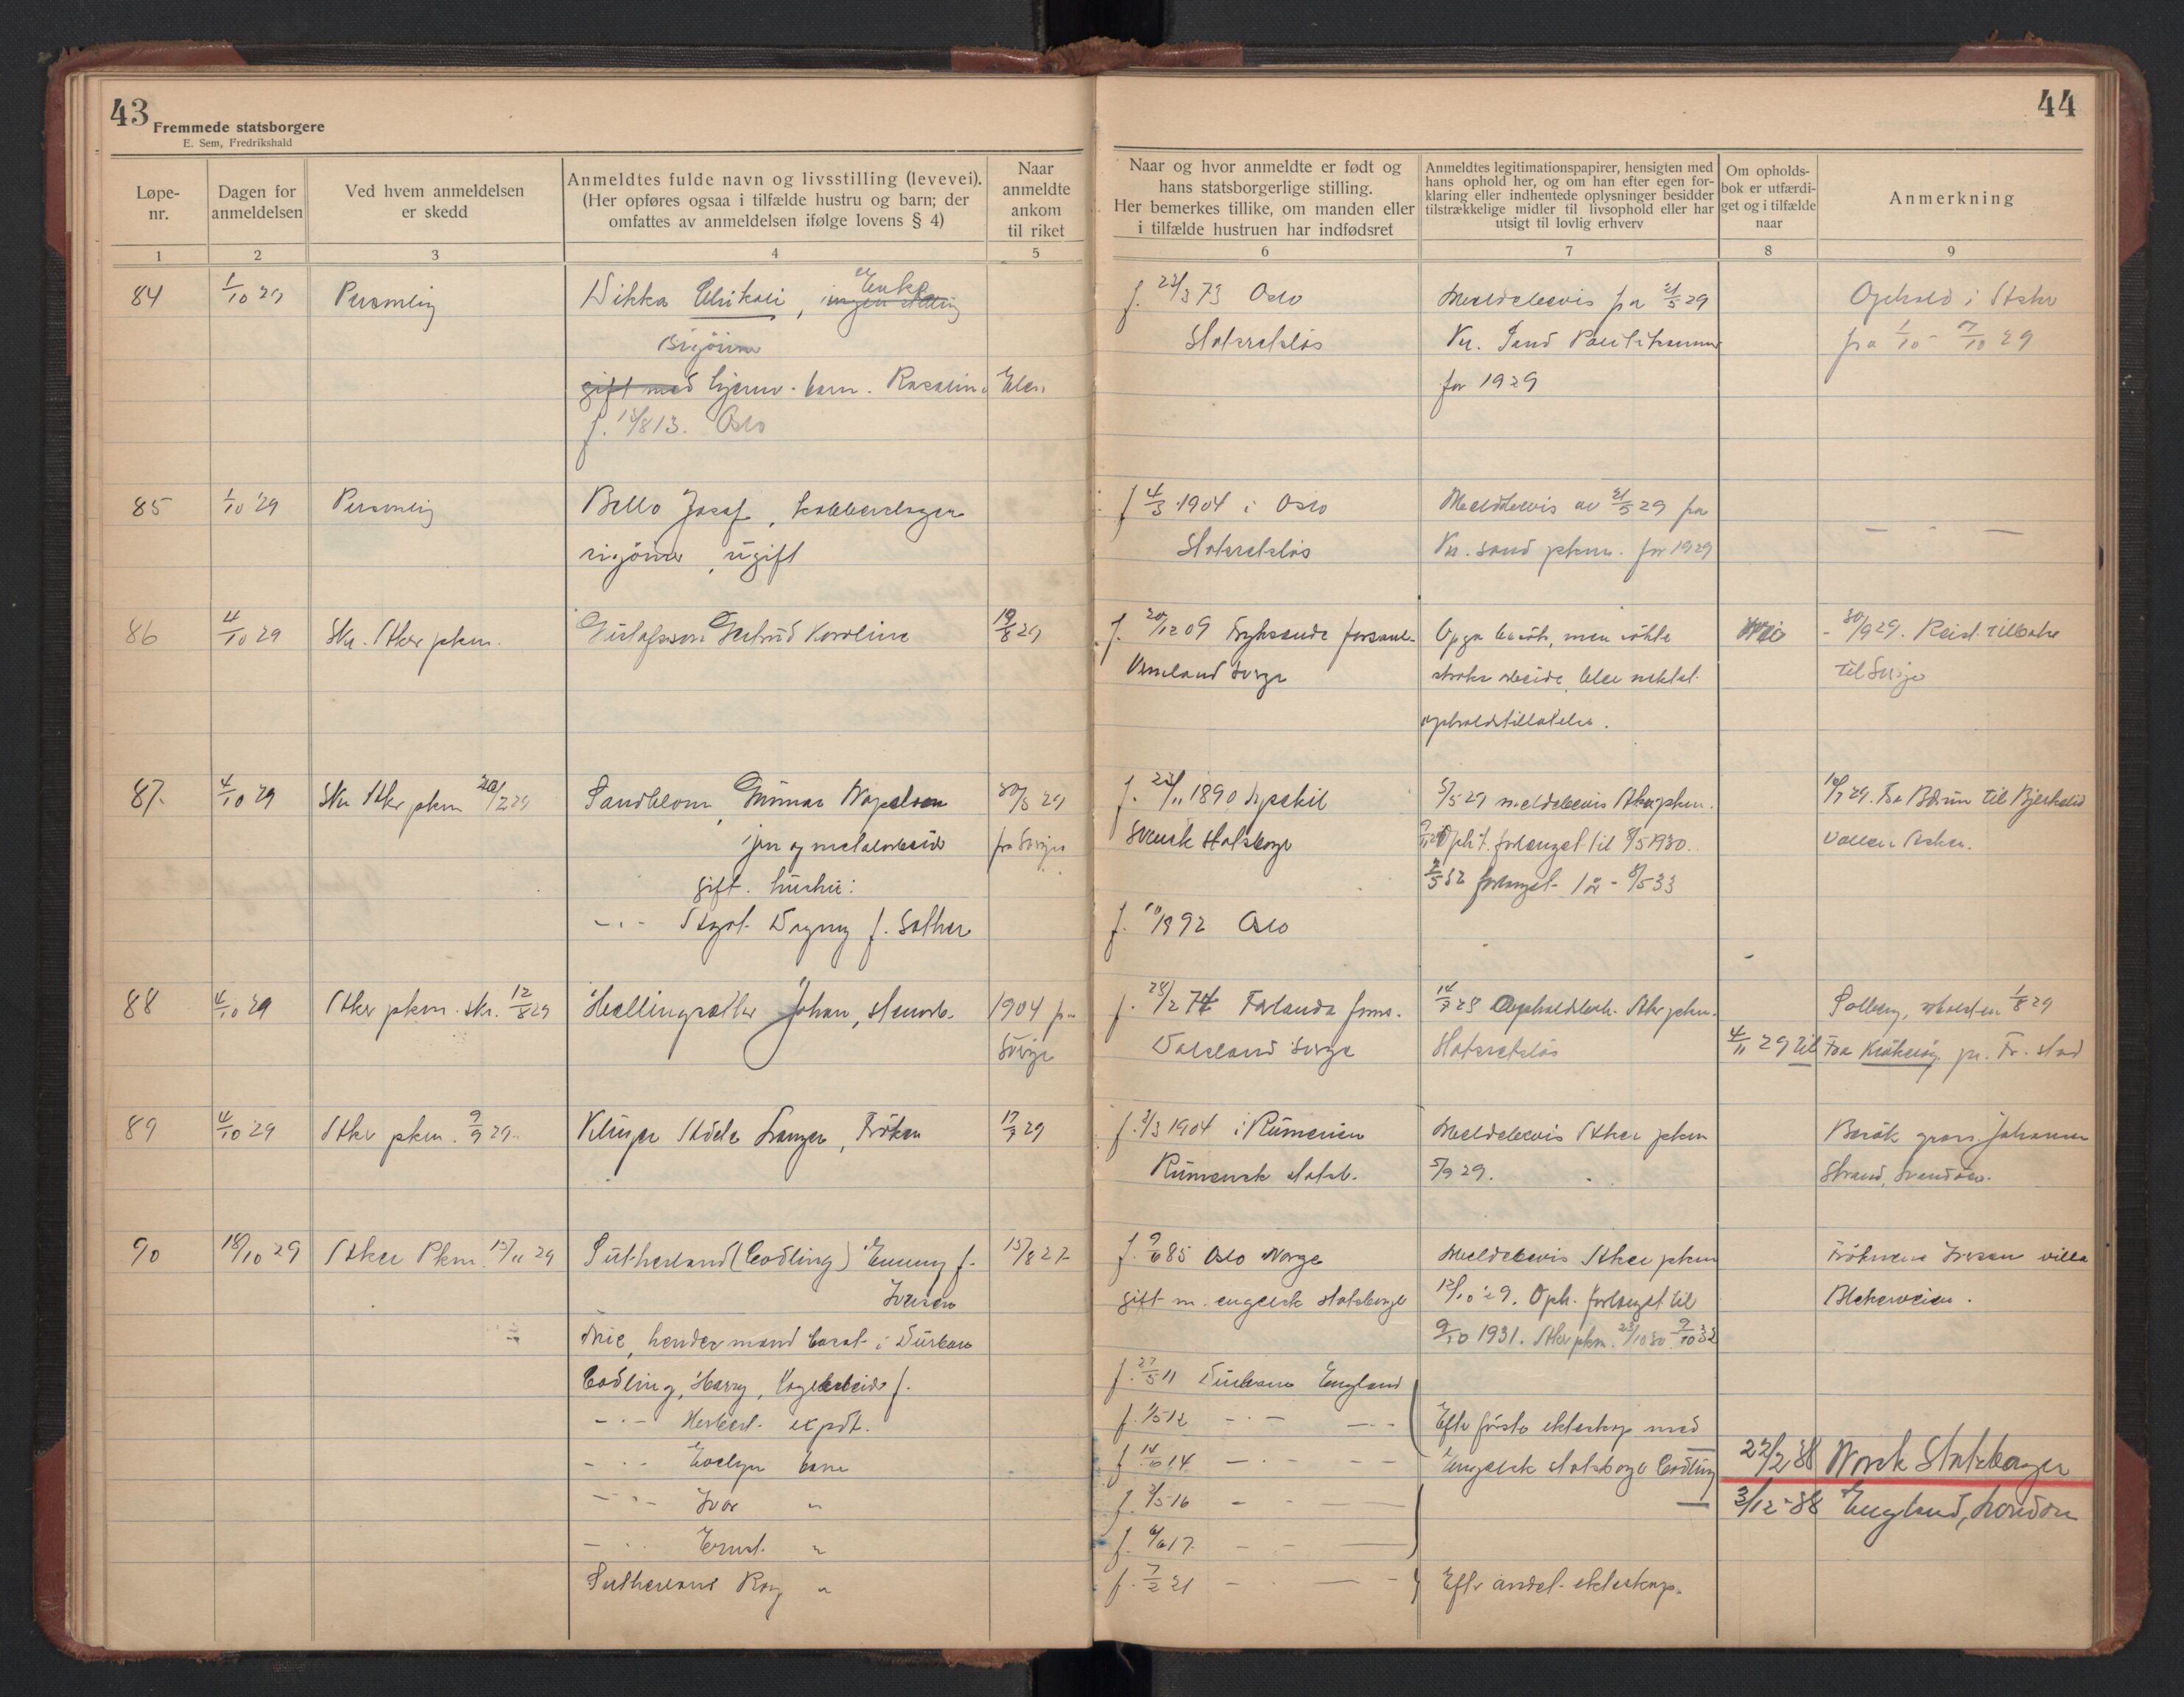 43
Fremmede statsborgere
E. Sem, Fredrikshald
44
Løpe-
nr.
Dagen for
anmeldelsen
Ved hvem anmeldelsen
er skedd
Anmeldtes fulde navn og livsstilling (levevei).
(Her opføres ogsaa i tilfælde hustru og barn; der
omfattes av anmeldelsen ifølge lovens § 4)
Naar
anmeldte
ankom
til riket
Naar og hvor anmeldte er født og
hans statsborgerlige stilling.
Her bemerkes tillike, om manden eller
i tilfælde hustruen har indfødsret
Anmeldtes legitimationspapirer, hensigten med
hans ophold her, og om han efter egen for-
klaring eller indhentede oplysninger besidder
tilstrækkelige midler til livsophold eller har
utsigt til lovlig erhverv
Om opholds-
bok er utfærdi-
get og i tilfælde
naar
Anmerkning
1 2 3 4 5 6 7 8 9
84
1/10 29
Personlig
Enke
Sigöiner
gift med hjemv. barn.
f. 14/8 13. Oslo
f. 23/3 73 Oslo
Statsretslös
Meldebevis fra 21/5 29
Kr. Sand Politikammer
for 1929
Ophold i Aker
fra 1/10 - 7/10 29
85
1/10 29
Personlig
Bello Josef, kobberslager
sigöiner, ugift
f 4/3 1904 i Oslo
Statsretslös
Meldebevis av 21/5 29 fra
Kr. sand pkm. for 1929
86
4/10 29
Skr. Aker pkm.
Gustafsson Gertrud Karoline
19/8 29
f. 20/12 09 Fryksande
Vermland Sverge
Opga besök, men sökte
straks arbeide, blev nektet
opholdstillatelse.
Nei
- 30/9 29. Reist tilbake
til Sverge
87.
4/10 29
Skr Aker pkm
Sandblom, Gunnar
jern og metalarbeider
gift. hustru:
Dagny f. Sather
30/3 29
fra Sverge
f. 23/11 1890 Lysekil
Svensk Statsborger
f. 1892 Oslo
5/5 29 meldebevis Aker pkm.
Opht. forlenget til 8/5 1930.
2/5 32 forlenget 1 år - 8/5 33
Fra Bærum til
Asker.
88
4/10 29
Aker pkm. skr. 12/8 29
Hellingsetter Johan,
1904 fra
Sverge
f. 28/2 74
Dalsland Sverge
14/7 28 Opholdsbok Aker pkm.
Statsretslös
4/11 29 til
Solberg, 1/8 29
Fra Kråkeröy pr. Fr. stad
89
4/10 29
Aker pkm. 9/9 29.
Klinger Adele Fröken
17/7 29
f. 3/3 1904 i Rumenien
Rumensk statsb.
Meldebevis Aker pkm
5/9 29.
Besök gross. Johannes
Strand,
90
18/10 29
Aker Pkm. 15/11 29
Sutherland (Codling) Emmy f.
Iversen
15/8 27
Frue, hendes mand bosat i Durban
Codling, Harry,
Herbert. expdt.
Evelyn barn
Ivar "
Ernst. "
Sutherland Roy "
f. 9/6 85 Oslo Norge
gift m. engelsk statsborger
f. 27/5 11 Durban England
f. 1/5 12
f. 14/6 14
f. 3/5 16
f. 6/6 17
f. 7/2 21
Meldebevis Aker pkm
12/10 29. Oph. forlenget til
9/10 1931. Aker pkm. 23/10 30 9/10 32
Efter förste ekteskap med
Engelsk statsborger Codling
Efter andet ekteskap.
Fröknene Iversen villa
Blekerveien.
22/2 38 Norsk Statsborger
3/12-38 England, London